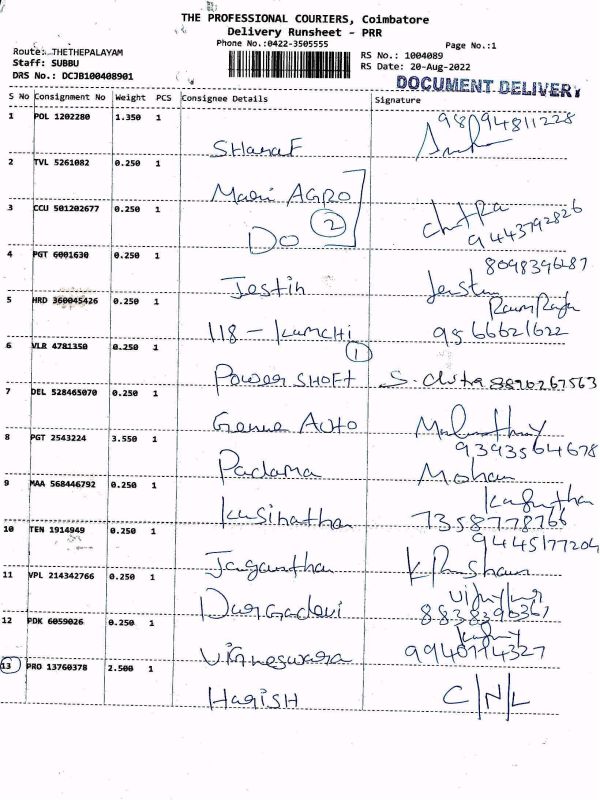 THE PROFESSIONAL COURIERS, Coimbatore
Delivery Runsheet - PRR
Phone No.:0422-3505555
Page No.:1
Route: THETHEPALAYAM
RS No.: 1004089
Staff: SUBBU
RS Date: 20-Aug-2022
DRS No.: DCJB100408901
DOCUMENT DELIVERY
S No Consignment No Weight PCS Consignee Details Signature
1 POL 1202280 1.350 1
98094811228
SHaraF
2 TVL 5261082 0.250 1
Mari AGRO
3 CCU 501202677 0.250 1
chitRa
DO 2
9443792826
4 PGT 6001630 0.250 1
8098396287
Jestin Jestin
5 HRD 360045426 0.250 1
118 - Kamchi 9566621622
6 VLR 4781350 0.250 1
1
Power SHOFt S. chitra 8890267563
7 DEL 528465070 0.250 1
AUTO
9393564678
8 PGT 2543224 3.550 1
Padama Mohan
9 MAA 568446792 0.250 1
Kasinathan 7358778766
10 TEN 1914949 0.250 1
9445177204
Jaganthan
11 VPL 214342766 0.250 1
DurGadevi 8838390367
12 PDK 6059026 0.250 1
Vigneswara 9940774327
13 PRO 13760378 2.500 1
HaRiSH C/N/L